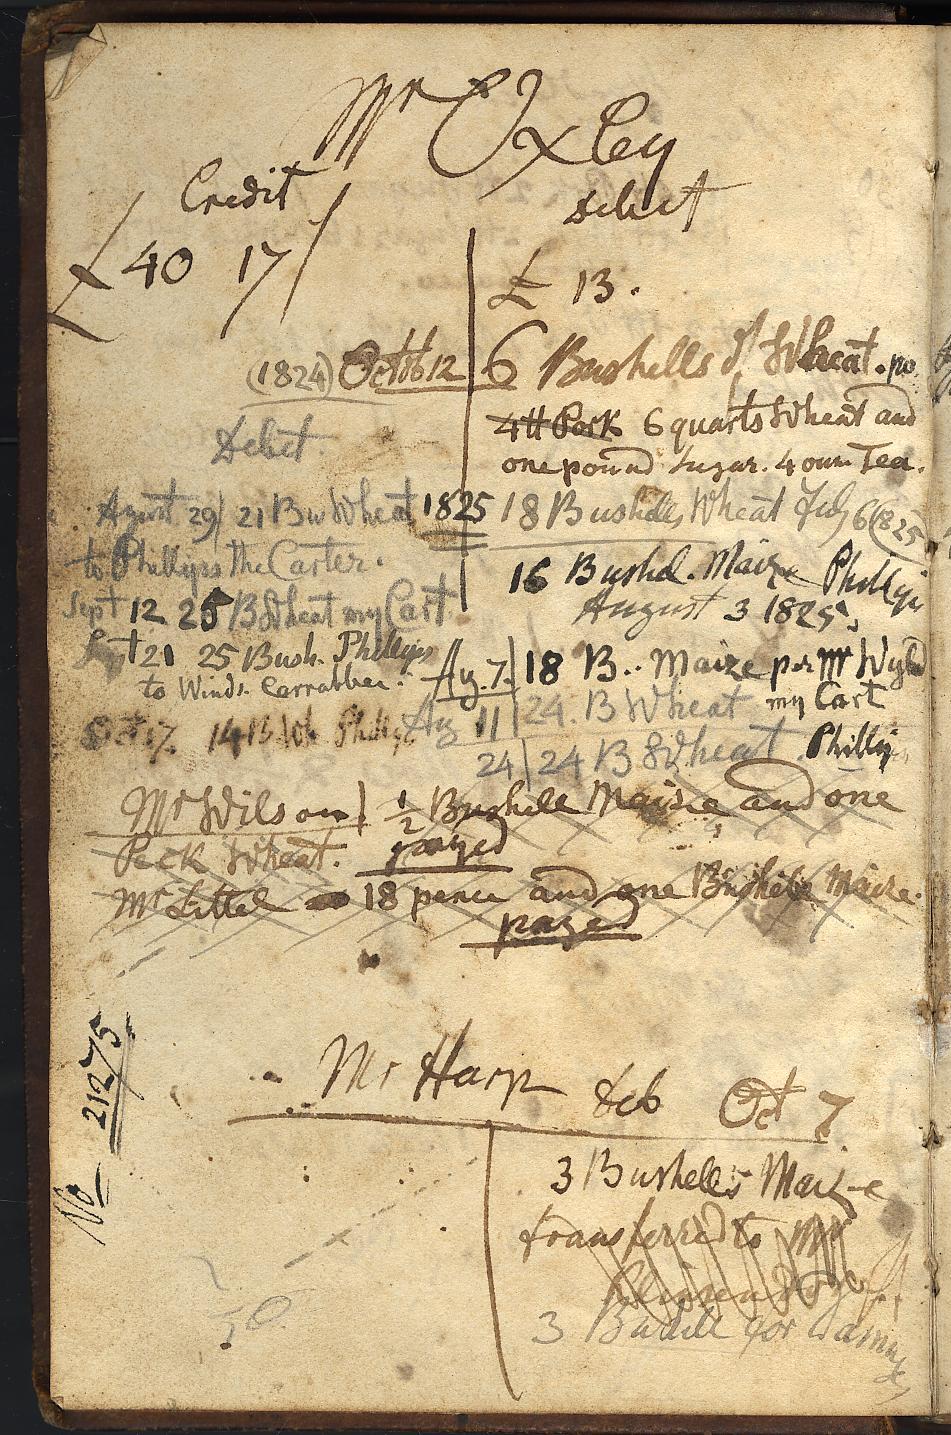 Mr Oxley
Credit
debit
£ 40 17/
£ 13.
(1824) Octob 12 6 Bushells of Wheat. po
4tt Pork 6 quarts Wheat and
one pound Sugar. 4 oun Tea.
Debit.
August 29/ 21 Bu Wheat 1825 18 Bushels Wheat July 6 (1825
to Phillyps the Carter.
16 Bushel. Maize Phillyi
August 3 1825,
Sept 12 25 B Wheat my Cart
Sept 21 25 Bush. Phillyps Ag. 7. 18 B.. Maize per Mr Wyld
to Winds. Carrabber. my Cart
Oct 17. 14 B Wh Phillyps Ag 11 24. B Wheat
24 24 B Wheat Philly
Mr Wilson 1/2 Bushele Maisie and one
Peck Wheat. payed
Mr Littel 18 pence and one Bushele Maize.
payed
No 21275
Mr Harp deb Oct 7
3 Bushells Maize
transferred to Mr
3 Bushell for